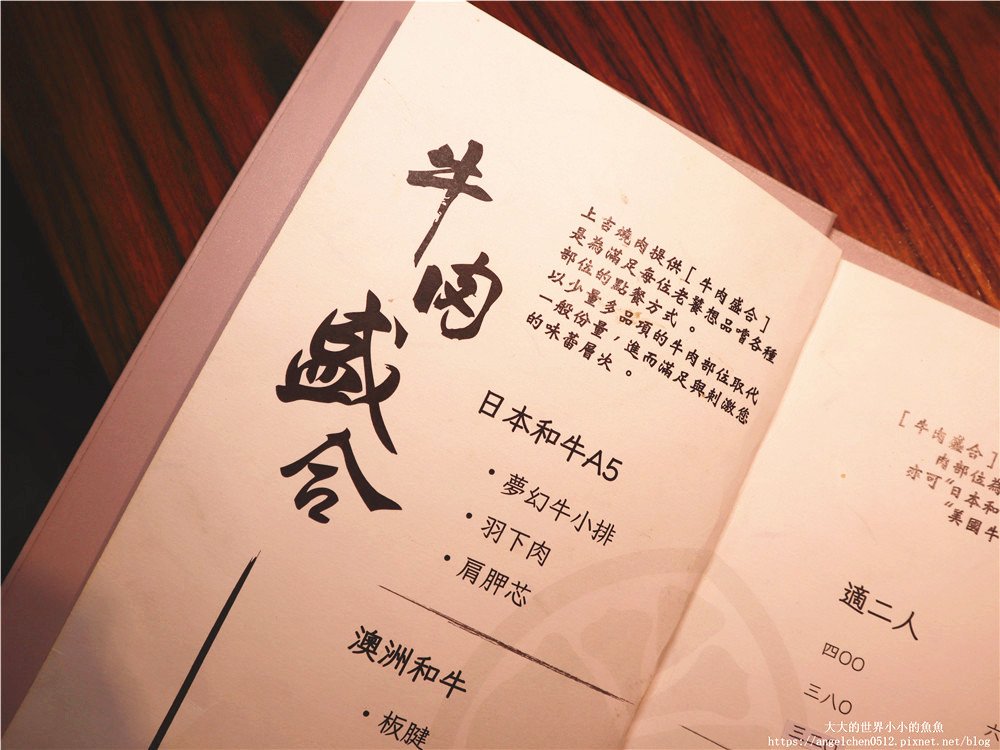 牛肉
盛合
上吉燒肉提供[牛肉盛合]
是為滿足每位老饕想品嚐各種
部位的點餐方式。
以少量多品項的牛肉部位取代
一般份量，進而滿足與刺激您
的味蕾層次。
日本和牛A5
•夢幻牛小排
•羽下肉
•肩胛芯
澳洲和牛
•板腱
[牛肉盛合]
肉部位為
亦可“日本和
“美國牛
適二人
四〇〇
三八〇
三
六
大大的世界小小的魚魚
https://angelchen0512.pixnet.net/blog